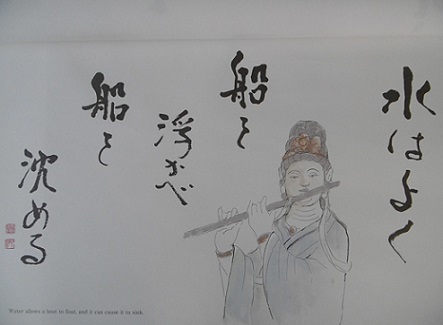 水はよく
船を
浮かべ
船を
沈める
Water allows a boat to float and it can cause it to sink.